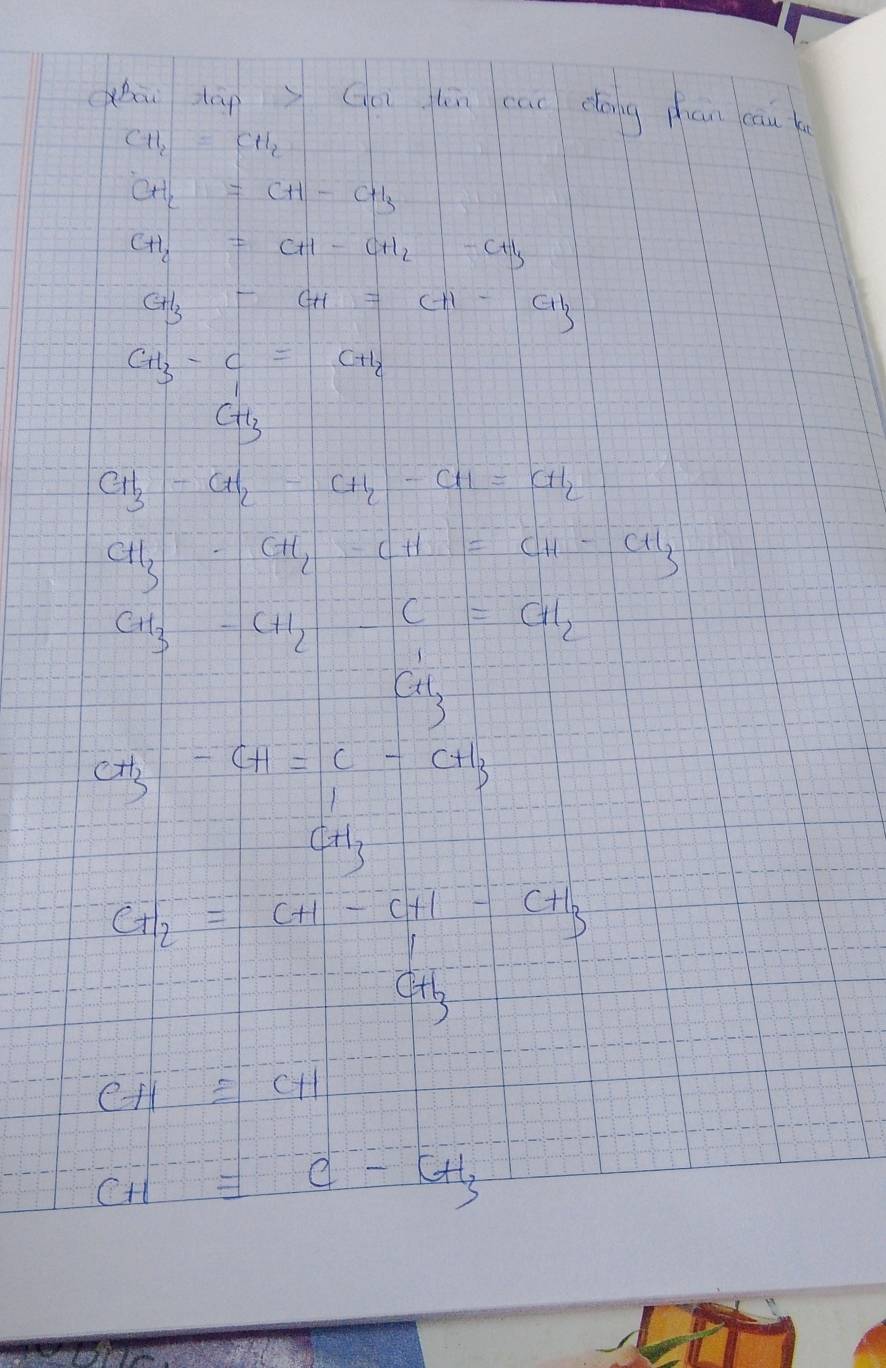 Bài tập > Gọi tên các đồng phân cấu tạo
CH₂ = CH₂
CH₂ = CH - CH₃
CH₂ = CH - CH₂ - CH₃
CH₃ - CH = CH - CH₃
CH₃ - C = CH₂
|
CH₃
CH₃ - CH₂ - CH₂ - CH = CH₂
CH₃ - CH₂ - CH = CH - CH₃
CH₃ - CH₂ - C = CH₂
|
CH₃
CH₃ - CH = C - CH₃
|
CH₃
CH₂ = CH - CH - CH₃
|
CH₃
CH ≡ CH
CH ≡ C - CH₃